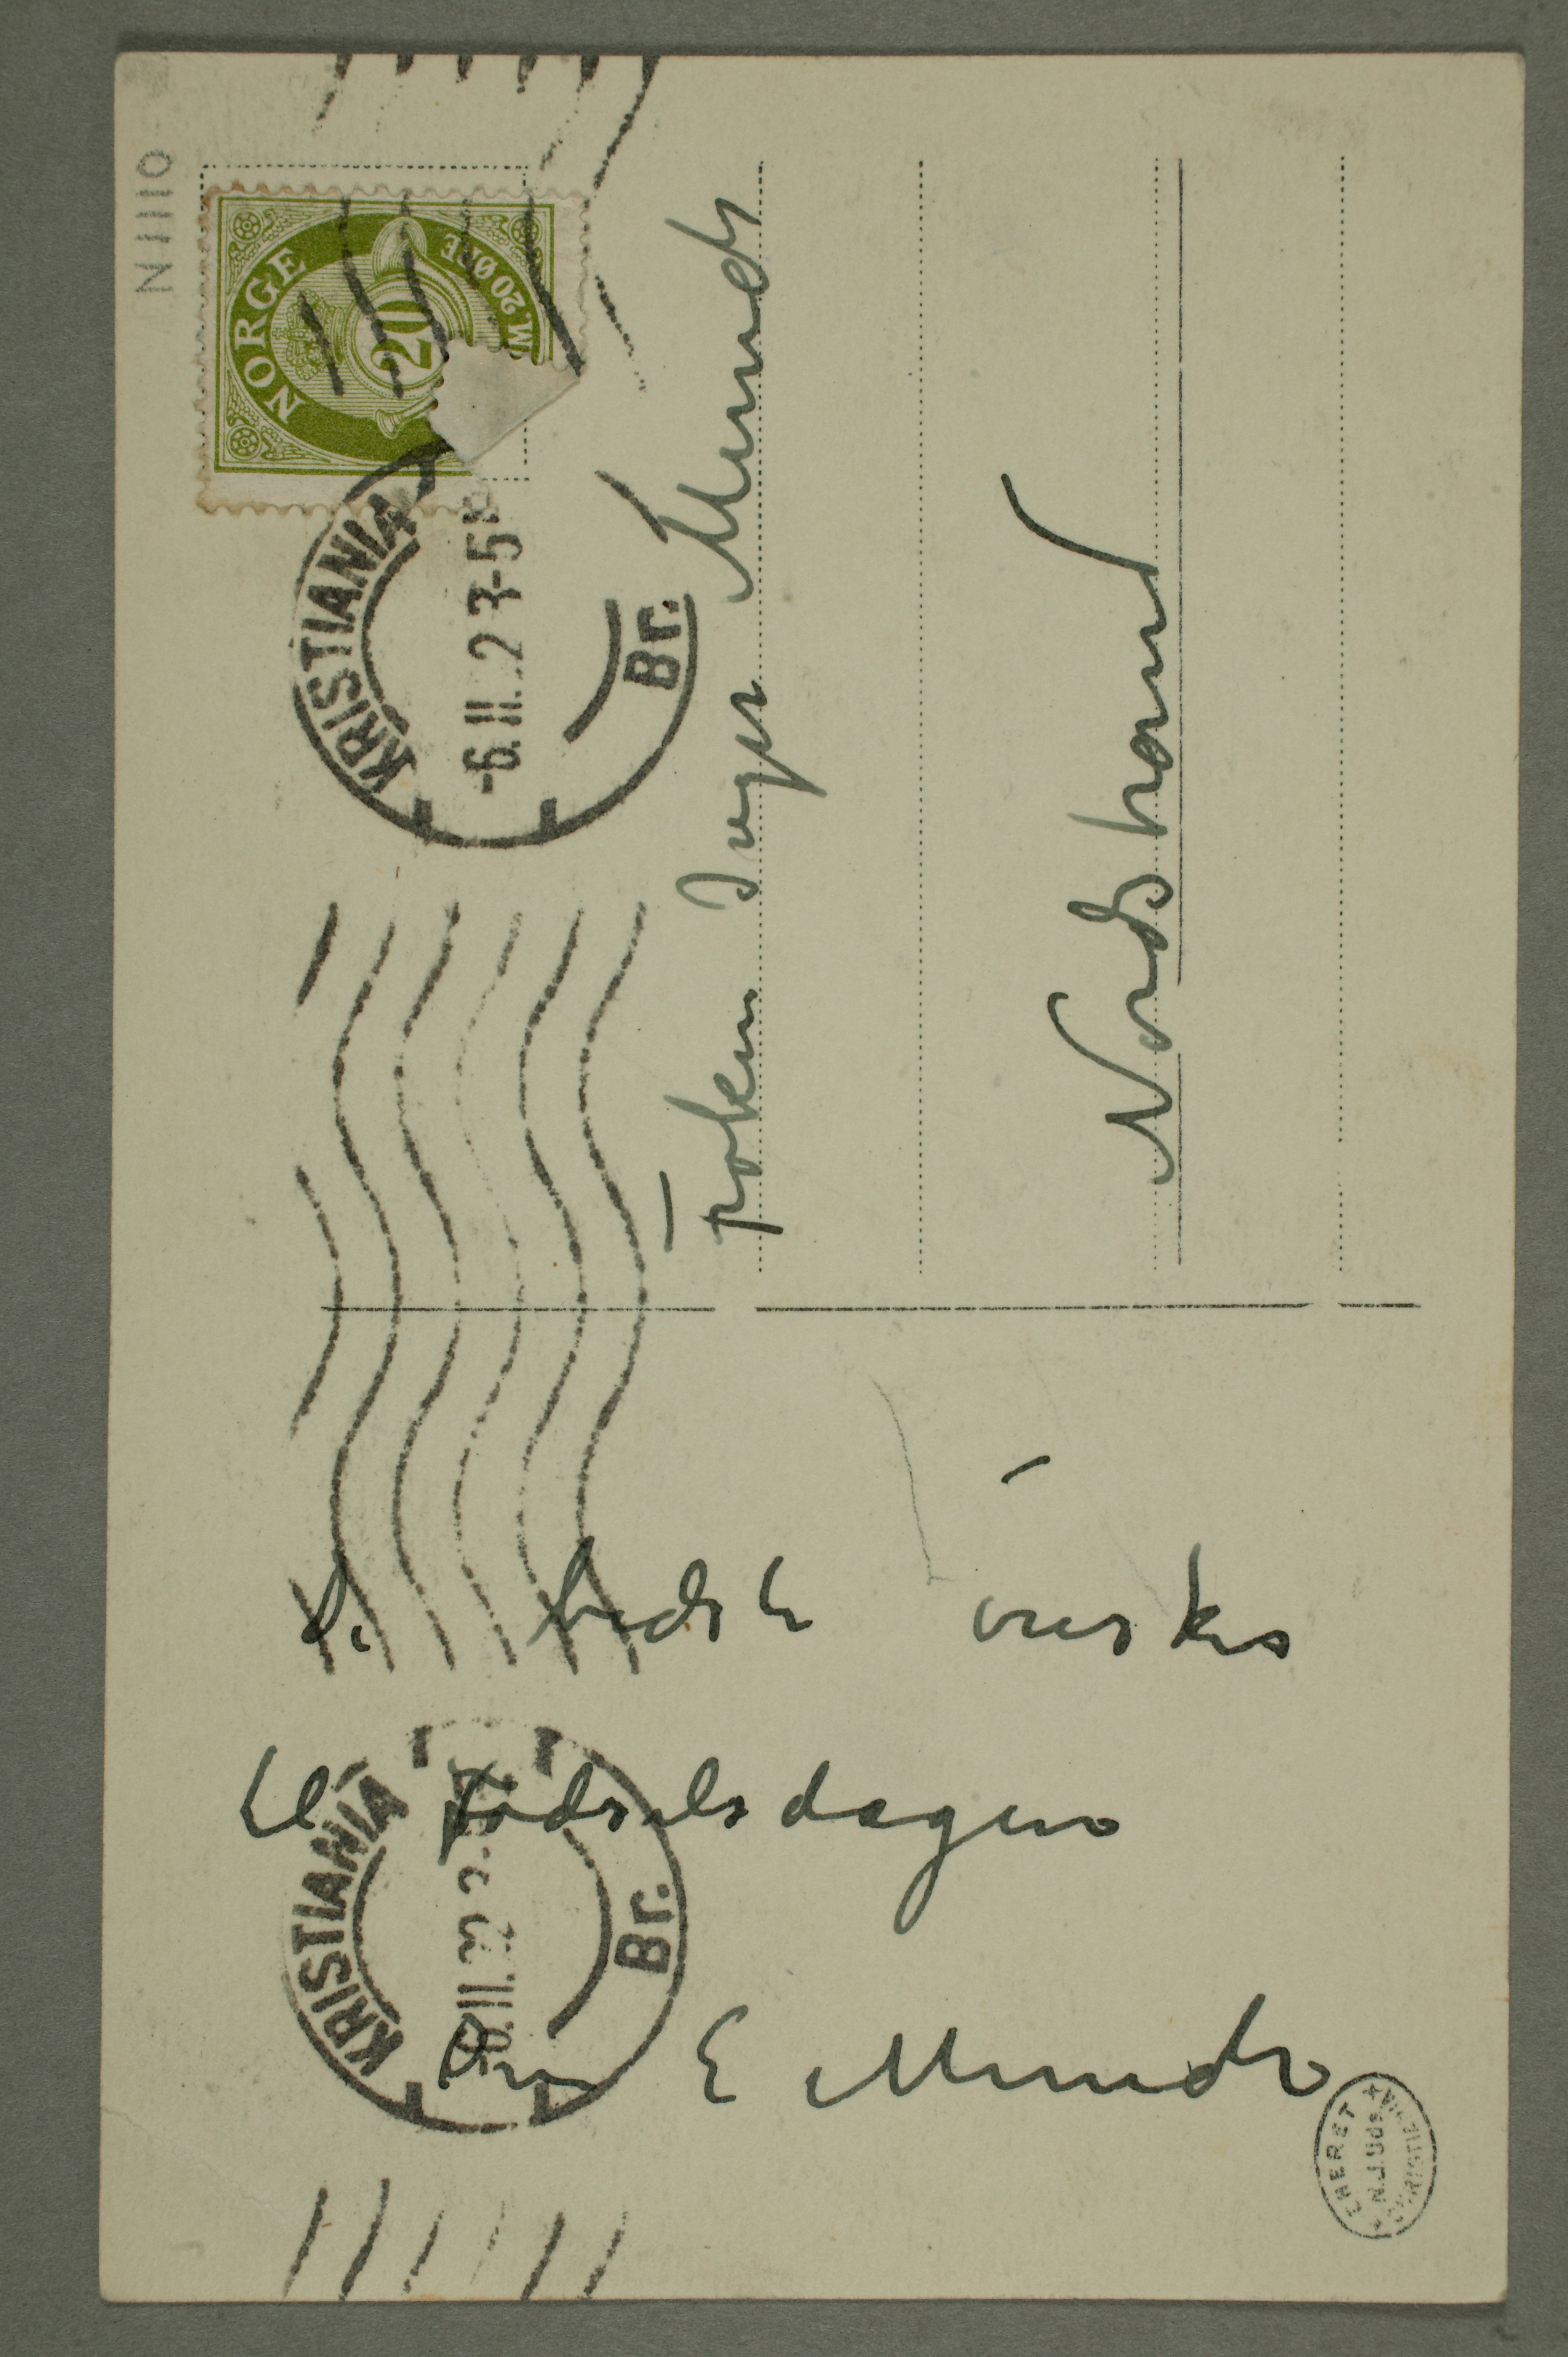 N 1110
NORGE
20
M 20 ØRE
KRISTIANIA
-6.11.22 3-5
Br.
Frøken Inger Munch
Nordstrand
De bedste ønsker
til fødselsdagen
Din E Munch
KRISTIANIA
6.11.22
Br.
ENERET
N.J.Uds.
KRISTIANIA